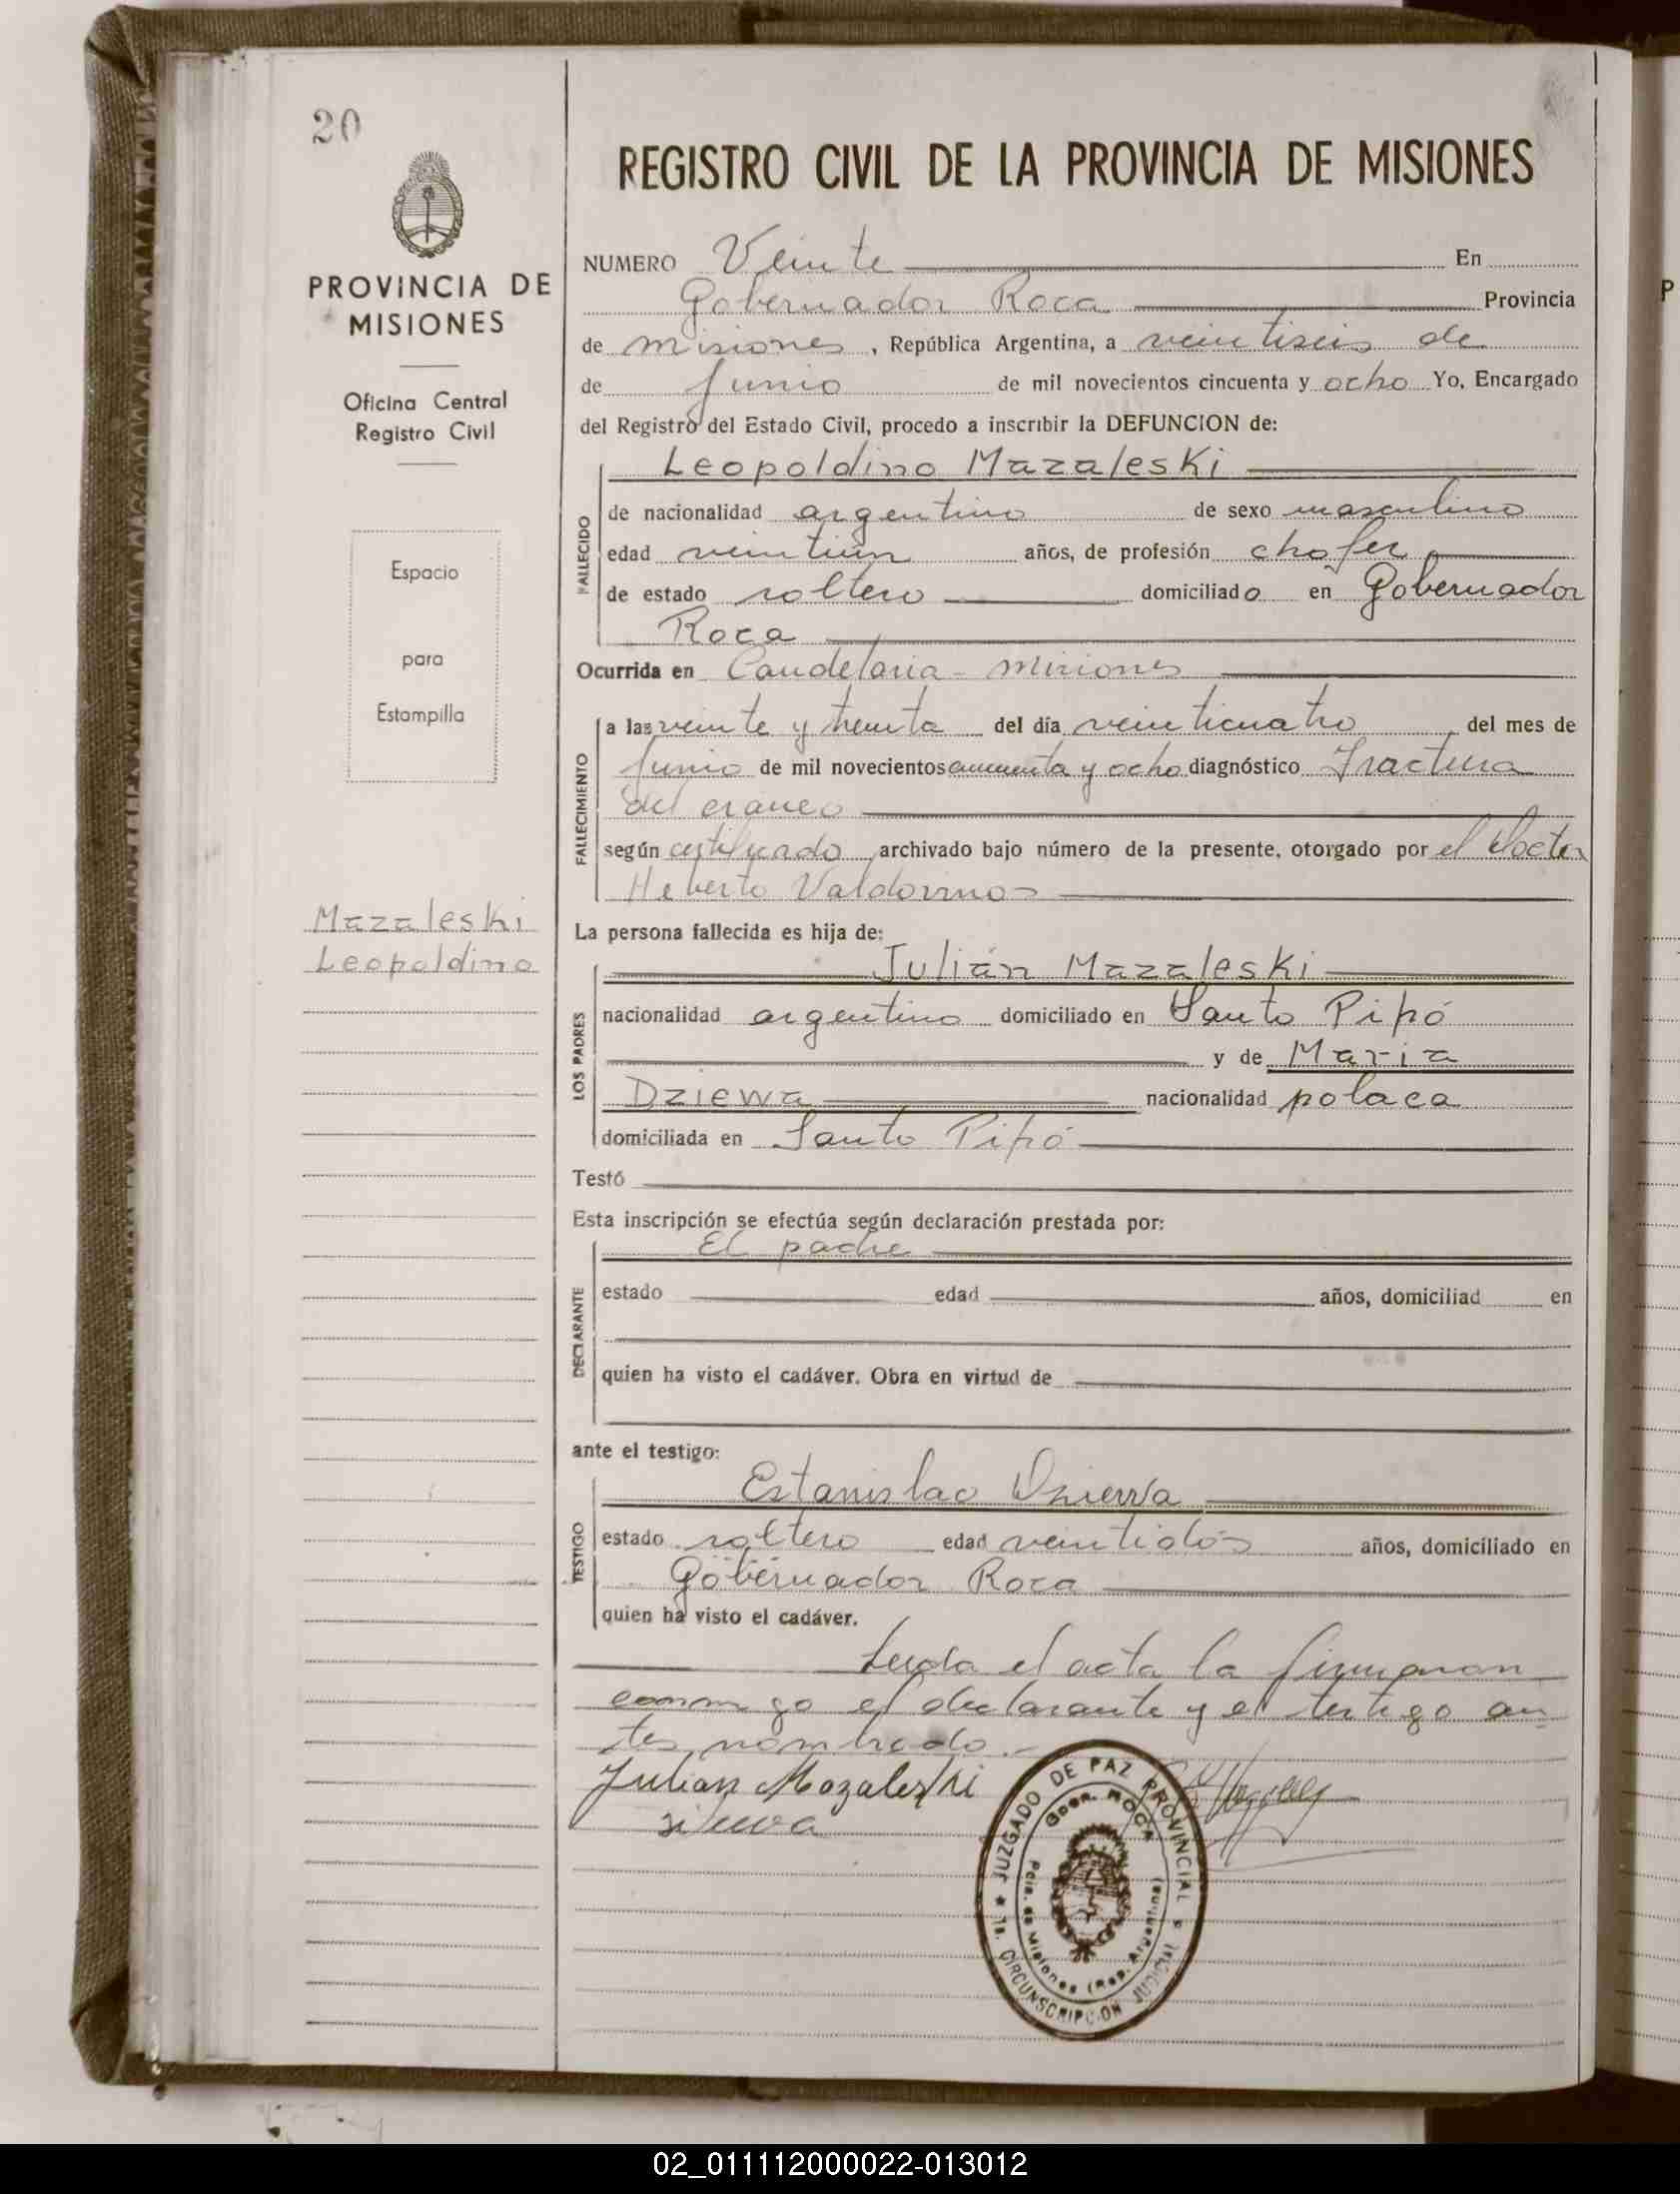 20
PROVINCIA DE
MISIONES
Oficina Central
Registro Civil
Espacio
para
Estampilla
Mazaleski
Leopoldino
REGISTRO CIVIL DE LA PROVINCIA DE MISIONES
NUMERO Veinte En
Gobernador Roca Provincia
de Misiones, República Argentina, a veintiseis de
de Junio de mil novecientos cincuenta y ocho Yo, Encargado
del Registro del Estado Civil, procedo a inscribir la DEFUNCION de:
Leopoldino Mazaleski
FALLECIDO
de nacionalidad argentino de sexo masculino
edad veintiún años, de profesión chofer
de estado soltero domiciliado en Gobernador
Roca
Ocurrida en Candelaria - Misiones
FALLECIMIENTO
a las veinte y treinta del día veinticuatro del mes de
Junio de mil novecientos cincuenta y ocho diagnóstico Fractura
del craneo
según certificado archivado bajo número de la presente, otorgado por el doctor
Heberto Valdovinos
La persona fallecida es hija de:
LOS PADRES
Julián Mazaleski
nacionalidad argentino domiciliado en Santo Pipó
y de María
Dziewa nacionalidad polaca
domiciliada en Santo Pipó
Testó
Esta inscripción se efectúa según declaración prestada por:
DECLARANTE
El padre
estado edad años, domiciliad en
quien ha visto el cadáver. Obra en virtud de
ante el testigo:
TESTIGO
Estanislao Dziewa
estado soltero edad veintidós años, domiciliado en
Gobernador Roca
quien ha visto el cadáver.
Leida el acta la firmaron
conmigo el declarante y el testigo an-
tes nombrado.-
Julian Mozaleski
JUZGADO DE PAZ PROVINCIAL
Gdor. ROCA
Pcia. de Misiones (Rep. Argentina)
1a. CIRCUNSCRIPCION JUDICIAL
P
02_011112000022-013012